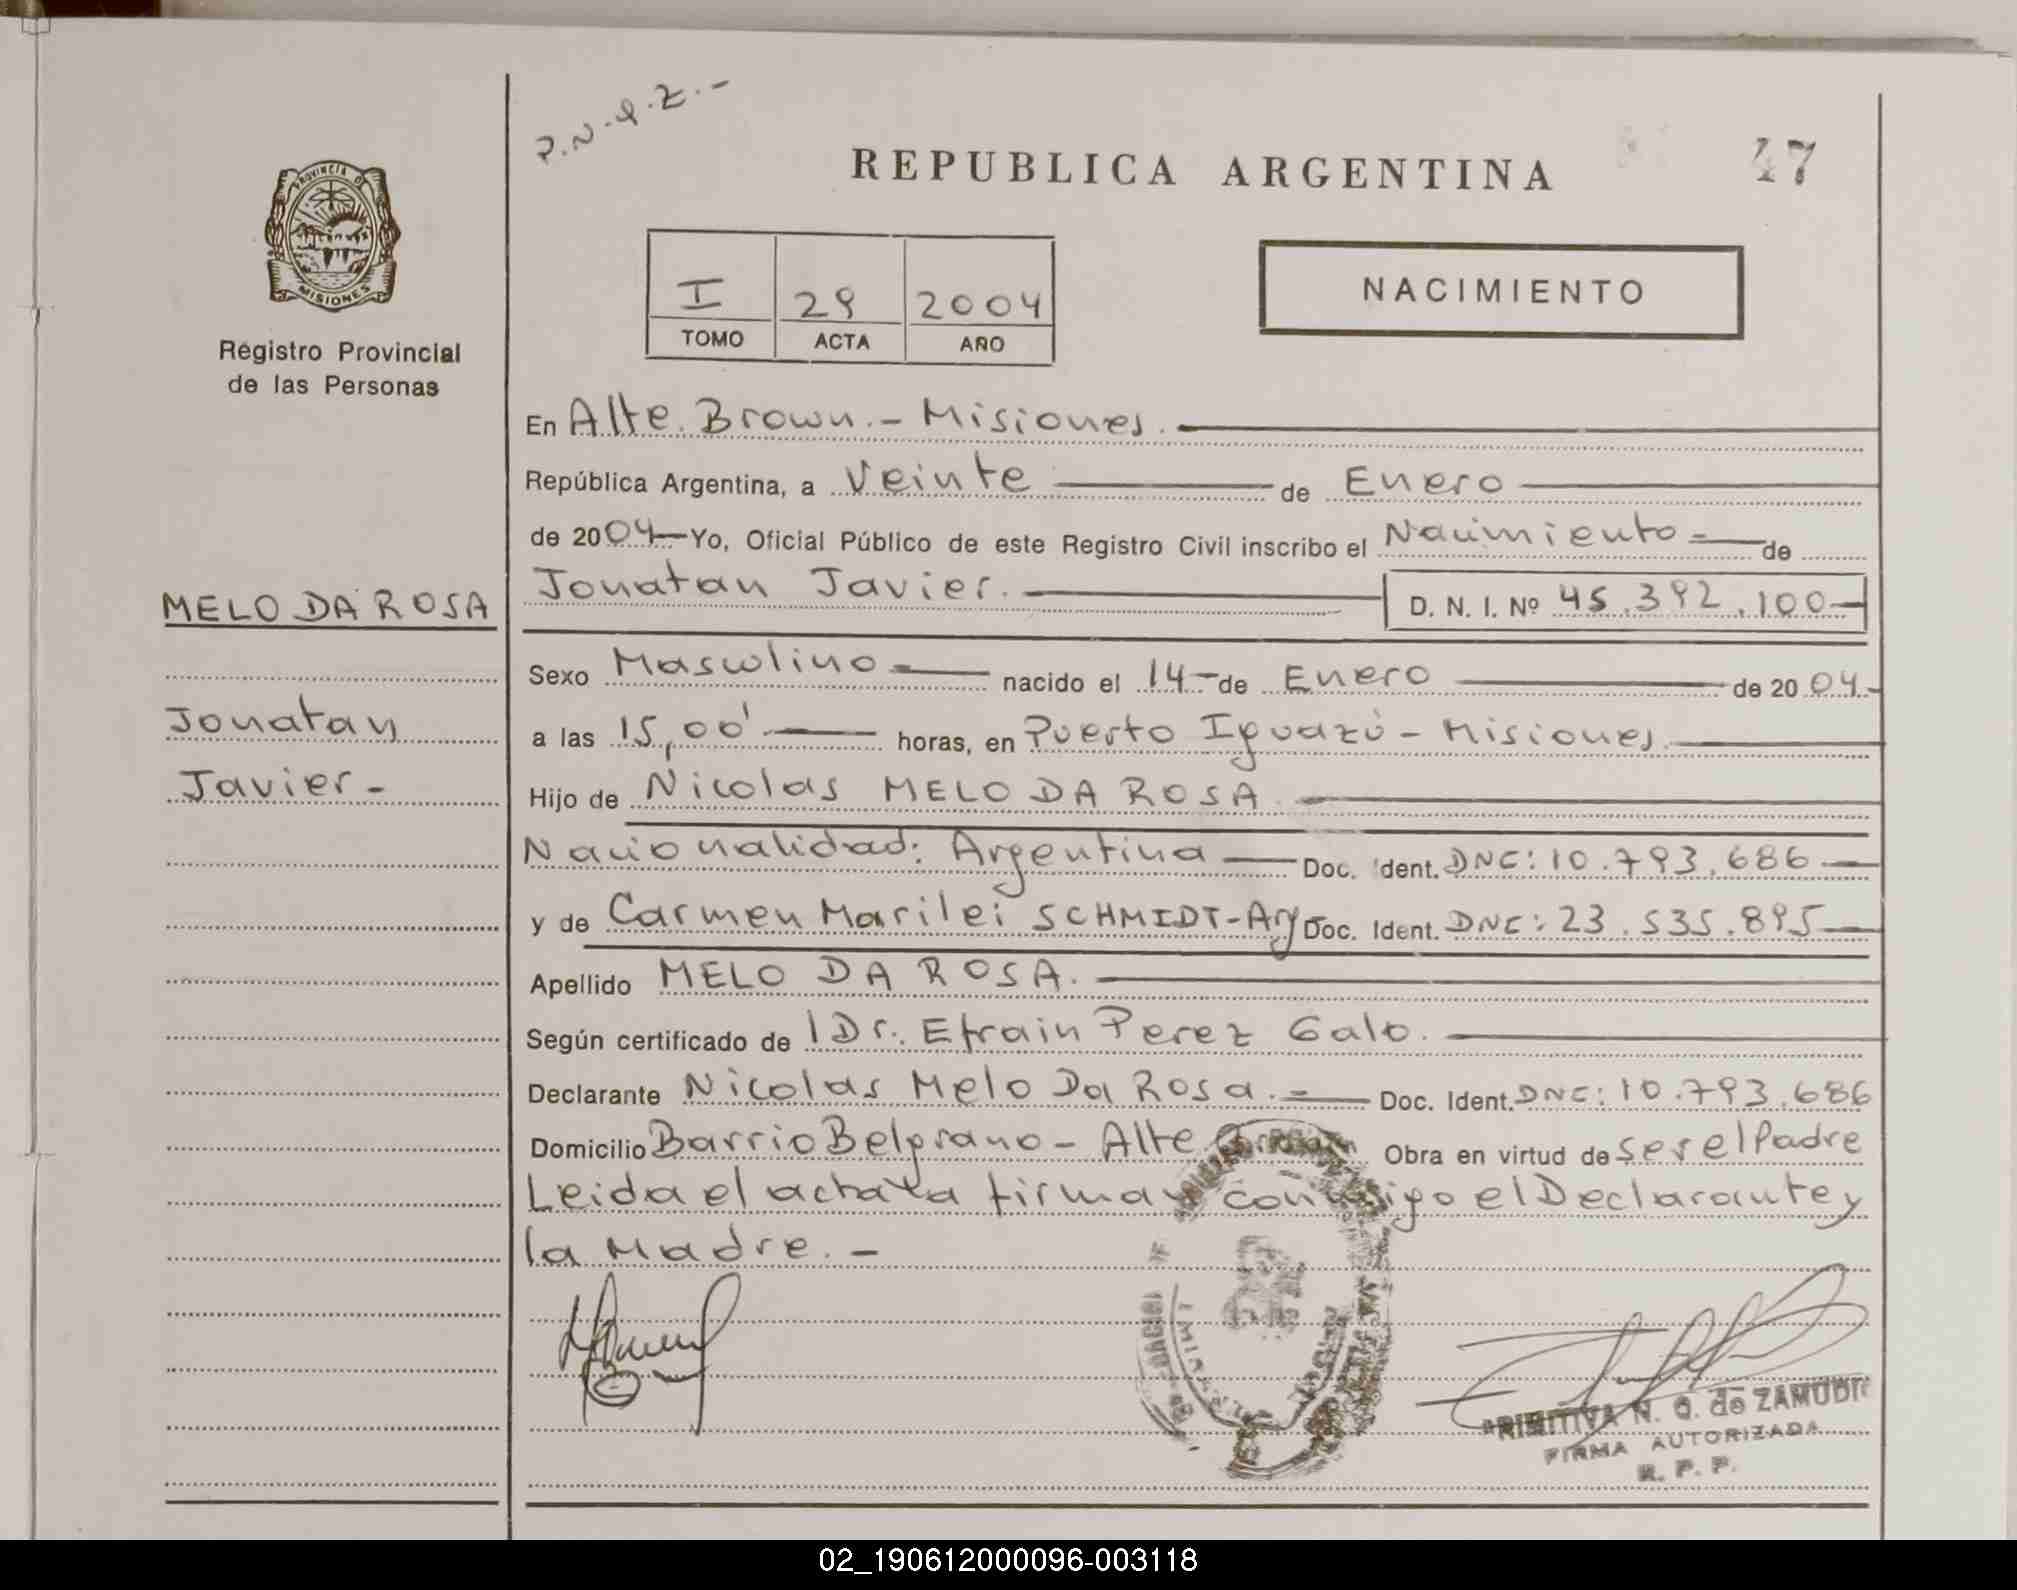 P.N.Q.Z.-
REPUBLICA ARGENTINA
47
PROVINCIA DE
MISIONES
Registro Provincial
de las Personas
I 29 2004
TOMO ACTA AÑO
NACIMIENTO
En Alte. Brown.- Misiones.
República Argentina, a Veinte de Enero
de 2004 Yo, Oficial Público de este Registro Civil inscribo el Nacimiento de
MELO DA ROSA
Jonatan Javier. D. N. I. Nº 45.392.100
Sexo Masculino nacido el 14 de Enero de 2004
Jonatan
a las 15,00' horas, en Puerto Iguazú - Misiones.
Javier-
Hijo de Nicolas MELO DA ROSA.
Nacionalidad: Argentina Doc. Ident. DNE: 10.793.686
y de Carmen Marilei SCHMIDT-Arg Doc. Ident. DNE: 23.535.895
Apellido MELO DA ROSA.
Según certificado de l Dr. Efrain Perez Galo.
Declarante Nicolas Melo Da Rosa.- Doc. Ident. DNE: 10.793.686
Domicilio Barrio Belgrano - Alte Obra en virtud de ser el Padre
Leida el acta la firman conmigo el Declarante y
la Madre.-
PRIMITIVA N. Q. de ZAMUDIO
FIRMA AUTORIZADA
R. P. P.
02_190612000096-003118